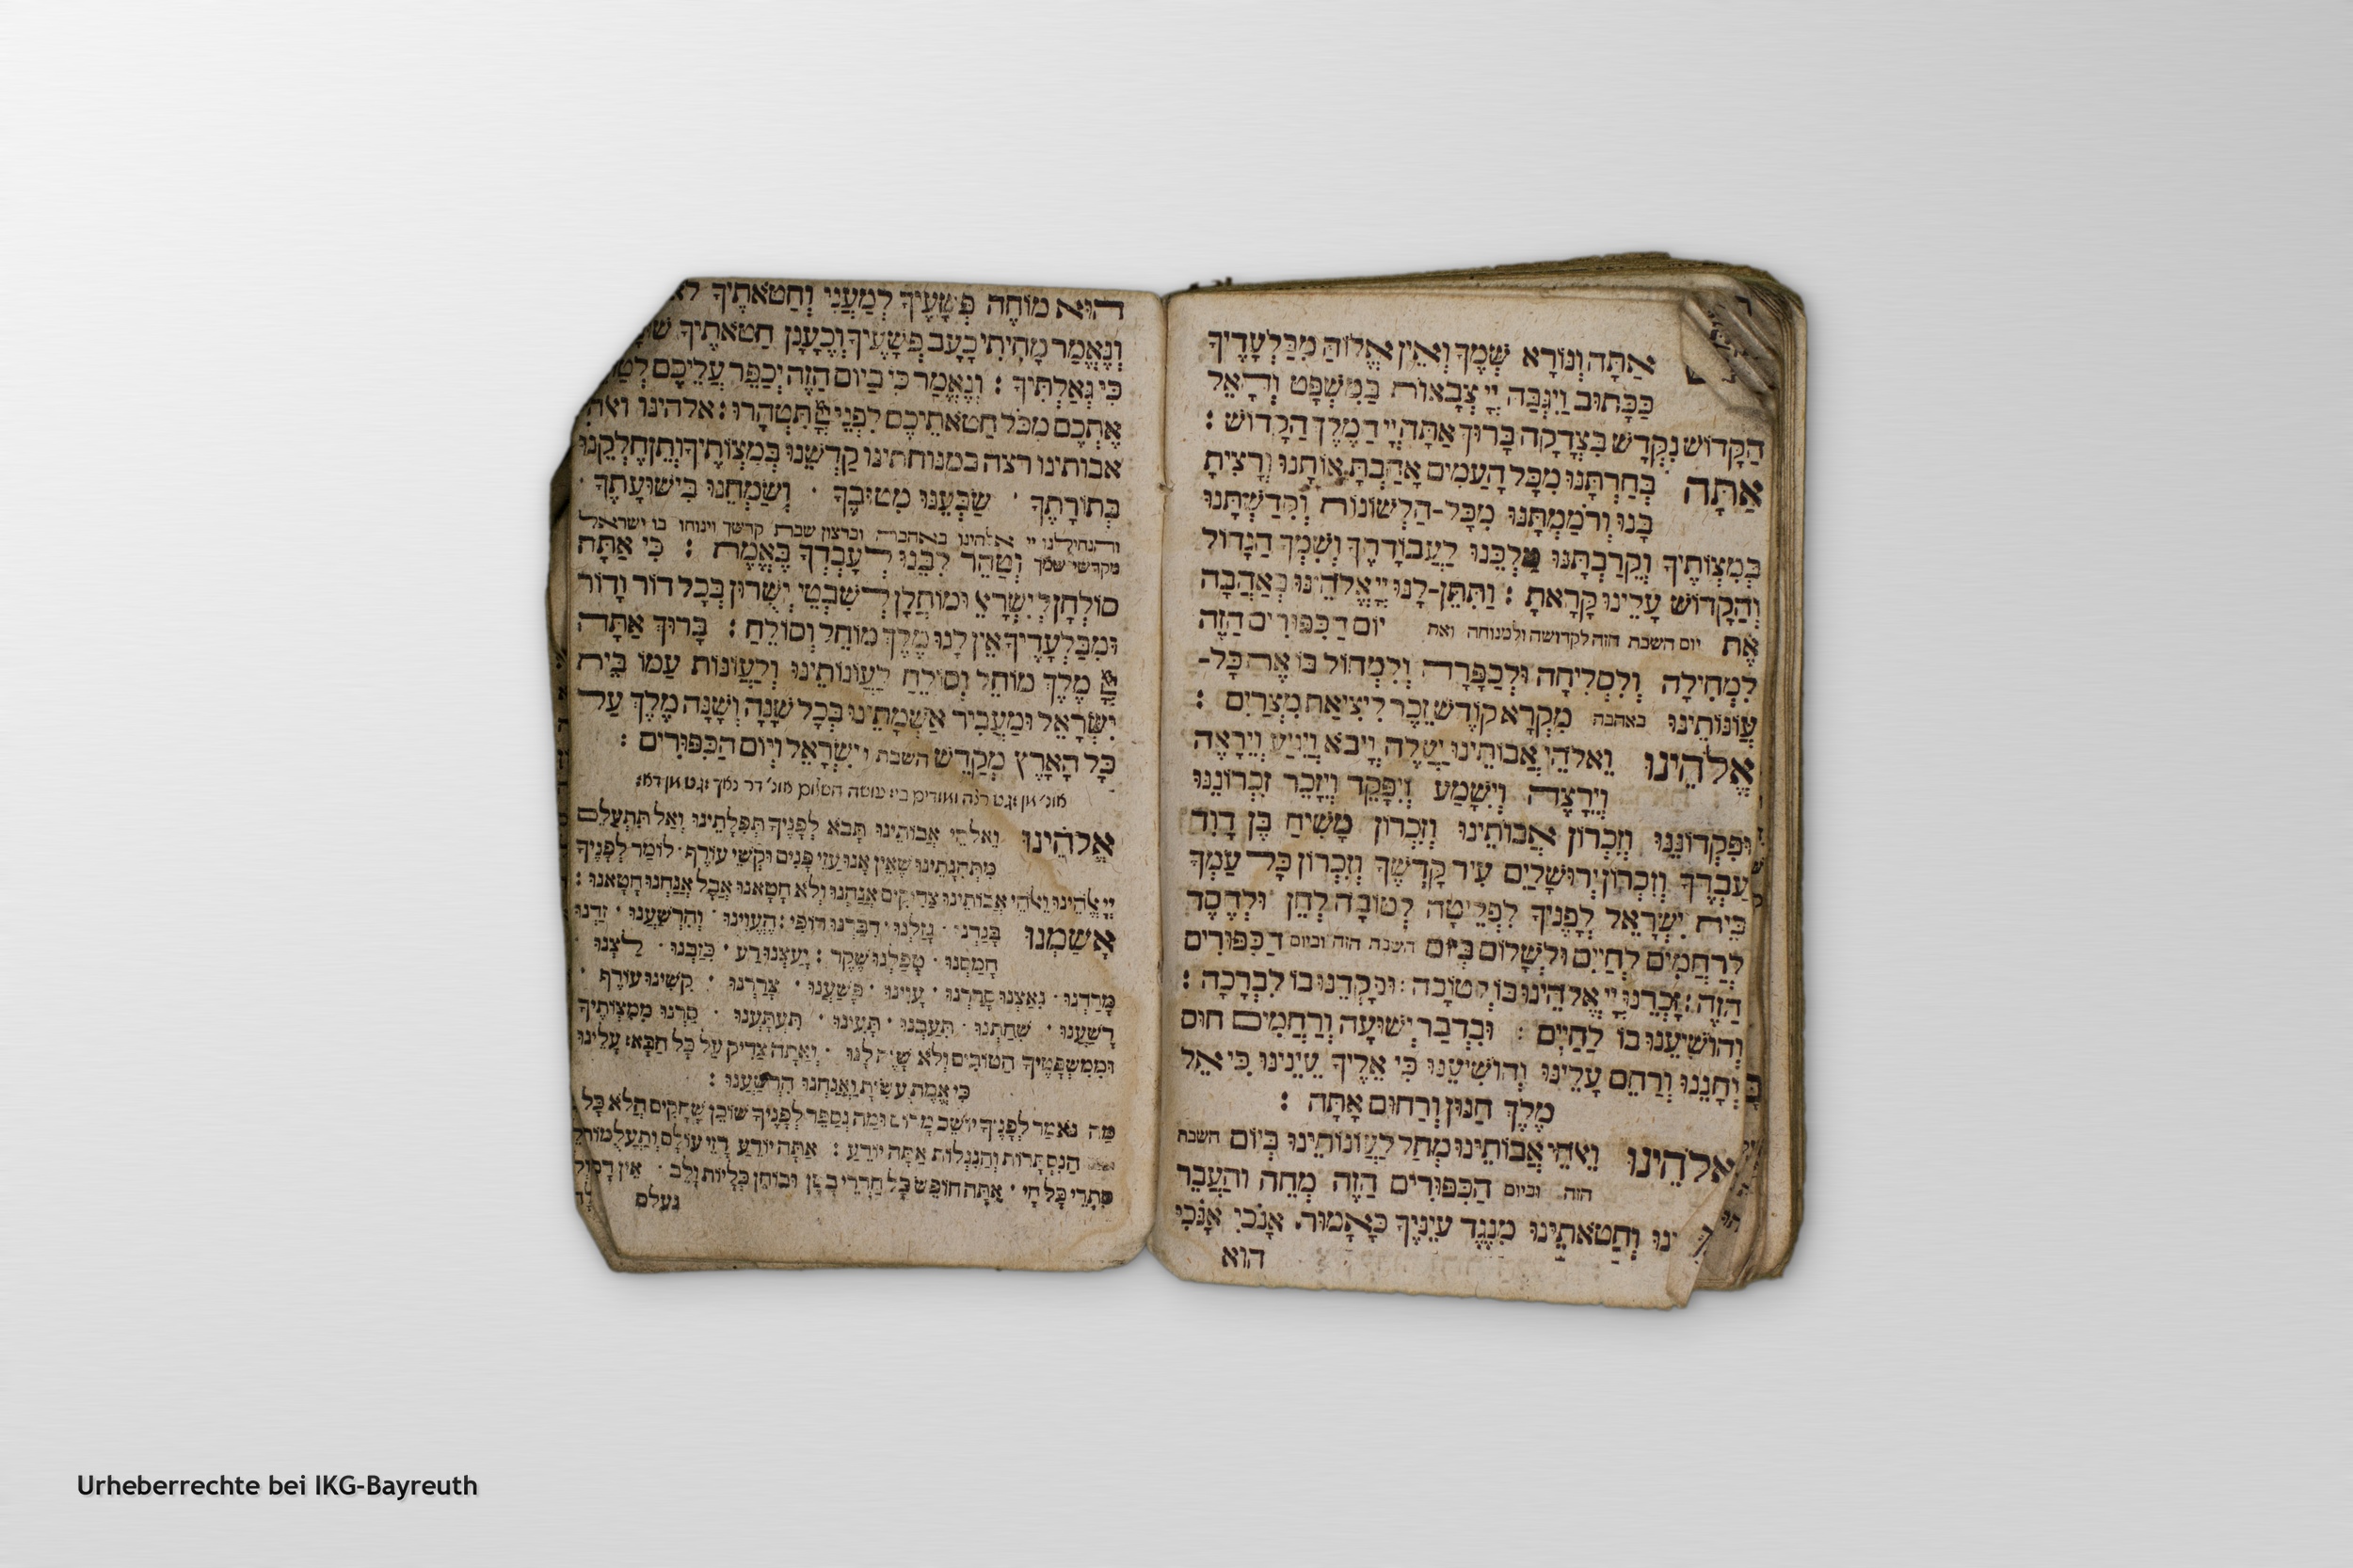 אַתָּה וְנוֹרָא שְׁמֶךָ וְאֵין אֱלוֹהַּ מִבַּלְעָדֶיךָ
כַּכָּתוּב וַיִּגְבַּה יְיָ צְבָאוֹת בַּמִּשְׁפָּט וְהָאֵל
הַקָּדוֹשׁ נִקְדָּשׁ בִּצְדָקָה בָּרוּךְ אַתָּה יְיָ הַמֶּלֶךְ הַקָּדוֹשׁ :
אַתָּה בְּחַרְתָּנוּ מִכָּל הָעַמִּים אָהַבְתָּ אוֹתָנוּ וְרָצִיתָ
בָּנוּ וְרֹמַמְתָּנוּ מִכָּל-הַלְּשׁוֹנוֹת וְקִדַּשְׁתָּנוּ
בְּמִצְוֹתֶיךָ וְקֵרַבְתָּנוּ מַלְכֵּנוּ לַעֲבוֹדָתֶךָ וְשִׁמְךָ הַגָּדוֹל
וְהַקָּדוֹשׁ עָלֵינוּ קָרָאתָ : וַתִּתֵּן-לָנוּ יְיָ אֱלֹהֵינוּ בְּאַהֲבָה
אֶת יום השבת הזה לקדושה ולמנוחה ואת יוֹם הַכִּפּוּרִים הַזֶּה
לִמְחִילָה וְלִסְלִיחָה וּלְכַפָּרָה וְלִמְחוֹל בּוֹ אֶת כָּל-
עֲוֹנוֹתֵינוּ באהבה מִקְרָא קוֹדֶשׁ זֵכֶר לִיצִיאַת מִצְרַיִם :
אֱלֹהֵינוּ וֵאלֹהֵי אֲבוֹתֵינוּ יַעֲלֶה וְיָבֹא וְיַגִּיעַ וְיֵרָאֶה
וְיֵרָצֶה וְיִשָּׁמַע וְיִפָּקֵד וְיִזָּכֵר זִכְרוֹנֵנוּ
וּפִקְדוֹנֵנוּ וְזִכְרוֹן אֲבוֹתֵינוּ וְזִכְרוֹן מָשִׁיחַ בֶּן דָּוִד
עַבְדֶּךָ וְזִכְרוֹן יְרוּשָׁלַיִם עִיר קָדְשֶׁךָ וְזִכְרוֹן כָּל עַמְּךָ
בֵּית יִשְׂרָאֵל לְפָנֶיךָ לִפְלֵיטָה לְטוֹבָה לְחֵן וּלְחֶסֶד
לְרַחֲמִים לְחַיִּים וּלְשָׁלוֹם בְּיוֹם השבת הזה וביום הַכִּפּוּרִים
הַזֶּה : זָכְרֵנוּ יְיָ אֱלֹהֵינוּ בּוֹ לְטוֹבָה : וּפָקְדֵנוּ בוֹ לִבְרָכָה :
וְהוֹשִׁיעֵנוּ בוֹ לְחַיִּים : וּבִדְבַר יְשׁוּעָה וְרַחֲמִים חוּס
וְחָנֵּנוּ וְרַחֵם עָלֵינוּ וְהוֹשִׁיעֵנוּ כִּי אֵלֶיךָ עֵינֵינוּ כִּי אֵל
מֶלֶךְ חַנּוּן וְרַחוּם אָתָּה :
אֱלֹהֵינוּ וֵאלֹהֵי אֲבוֹתֵינוּ מְחַל לַעֲוֹנוֹתֵינוּ בְּיוֹם השבת
הזה וביום הַכִּפּוּרִים הַזֶּה מְחֵה וְהַעֲבֵר
וְחַטֹּאתֵינוּ מִנֶּגֶד עֵינֶיךָ כָּאָמוּר אָנֹכִי אָנֹכִי
הוא
הוּא מוֹחֶה פְשָׁעֶיךָ לְמַעֲנִי וְחַטֹּאתֶיךָ
וְנֶאֱמַר מָחִיתִי כָעָב פְּשָׁעֶיךָ וְכֶעָנָן חַטֹּאתֶיךָ
כִּי גְאַלְתִּיךָ : וְנֶאֱמַר כִּי בַיּוֹם הַזֶּה יְכַפֵּר עֲלֵיכֶם
אֶתְכֶם מִכֹּל חַטֹּאתֵיכֶם לִפְנֵי יְיָ תִּטְהָרוּ : אלהינו
אבותינו רצה במנוחתינו קַדְּשֵׁנוּ בְּמִצְוֹתֶיךָ וְתֵן חֶלְקֵנוּ
בְּתוֹרָתֶךָ · שַׂבְּעֵנוּ מִטּוּבֶךָ · וְשַׂמְּחֵנוּ בִּישׁוּעָתֶךָ ·
והנחילנו יי אלהינו באהבה וברצון שבת קדשך וינוחו בו ישראל
מקדשי שמך וְטַהֵר לִבֵּנוּ לְעָבְדְּךָ בֶּאֱמֶת : כִּי אַתָּה
סוֹלְחָן לְיִשְׂרָאֵל וּמוֹחֲלָן לְשִׁבְטֵי יְשֻׁרוּן בְּכָל דּוֹר וָדוֹר
וּמִבַּלְעָדֶיךָ אֵין לָנוּ מֶלֶךְ מוֹחֵל וְסוֹלֵחַ : בָּרוּךְ אַתָּה
יְיָ מֶלֶךְ מוֹחֵל וְסוֹלֵחַ לַעֲוֹנוֹתֵינוּ וְלַעֲוֹנוֹת עַמּוֹ בֵּית
יִשְׂרָאֵל וּמַעֲבִיר אַשְׁמָתֵינוּ בְּכָל שָׁנָה וְשָׁנָה מֶלֶךְ עַל
כָּל הָאָרֶץ מְקַדֵּשׁ השבת ו יִשְׂרָאֵל וְיוֹם הַכִּפּוּרִים :
רצה ומודים ביז עושה השלום
אֱלֹהֵינוּ וֵאלֹהֵי אֲבוֹתֵינוּ תָּבֹא לְפָנֶיךָ תְּפִלָּתֵינוּ וְאַל תִּתְעַלַּם
מִתְּחִנָּתֵינוּ שֶׁאֵין אָנוּ עַזֵּי פָנִים וּקְשֵׁי עוֹרֶף לוֹמַר לְפָנֶיךָ
יְיָ אֱלֹהֵינוּ וֵאלֹהֵי אֲבוֹתֵינוּ צַדִּיקִים אֲנַחְנוּ וְלֹא חָטָאנוּ אֲבָל אֲנַחְנוּ חָטָאנוּ :
אָשַׁמְנוּ בָּגַדְנוּ · גָּזַלְנוּ · דִּבַּרְנוּ דוֹפִי : הֶעֱוִינוּ · וְהִרְשַׁעְנוּ · זַדְנוּ
חָמַסְנוּ · טָפַלְנוּ שֶׁקֶר : יָעַצְנוּ רַע · כִּזַּבְנוּ · לַצְנוּ ·
מָרַדְנוּ · נִאַצְנוּ סָרַרְנוּ · עָוִינוּ · פָּשַׁעְנוּ · צָרַרְנוּ · קִשִּׁינוּ עוֹרֶף ·
רָשַׁעְנוּ · שִׁחַתְנוּ · תִּעַבְנוּ · תָּעִינוּ · תִּעְתָּעְנוּ · סַרְנוּ מִמִּצְוֹתֶיךָ
וּמִמִּשְׁפָּטֶיךָ הַטּוֹבִים וְלֹא שָׁוָה לָנוּ · וְאַתָּה צַדִּיק עַל כָּל הַבָּא עָלֵינוּ
כִּי אֱמֶת עָשִׂיתָ וַאֲנַחְנוּ הִרְשָׁעְנוּ :
מַה נֹּאמַר לְפָנֶיךָ יוֹשֵׁב מָרוֹם וּמַה נְּסַפֵּר לְפָנֶיךָ שׁוֹכֵן שְׁחָקִים הֲלֹא כָּל
הַנִּסְתָּרוֹת וְהַנִּגְלוֹת אַתָּה יוֹדֵעַ : אַתָּה יוֹדֵעַ רָזֵי עוֹלָם וְתַעֲלוּמוֹת
סִתְרֵי כָּל חָי · אַתָּה חוֹפֵשׂ כָּל חַדְרֵי בָטֶן וּבוֹחֵן כְּלָיוֹת וָלֵב · אֵין דָּבָר
נעלם
Urheberrechte bei IKG-Bayreuth